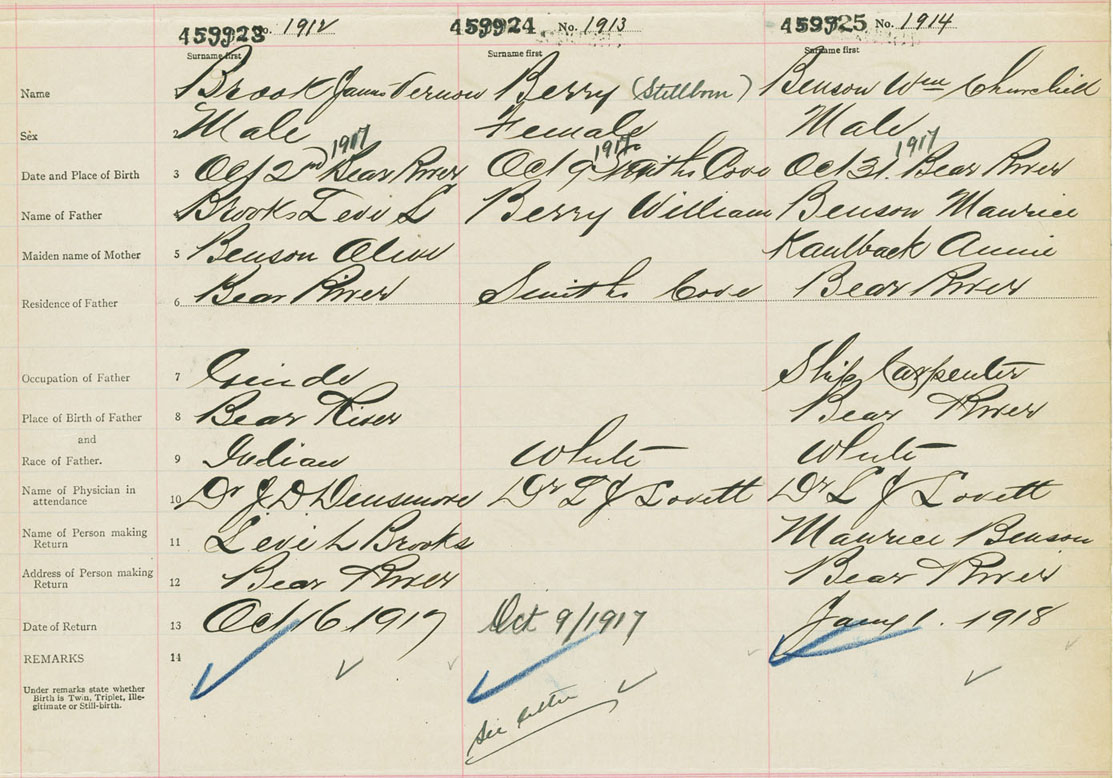 459923 No. 1912 459924 No. 1913 459925 No. 1914
Surname first Surname first Surname first
Name Brook James Vernon Berry (Stillborn) Benson Wm Churchill
Sex 2 Male Female Male
1917 1917 1917
Date and Place of Birth 3 Oct 2nd Bear River Oct 9 Smiths Cove Oct 31. Bear River
Name of Father Brooks Levi L Berry William Benson Maurice
Maiden name of Mother 5 Benson Olive Kaulback Annie
Residence of Father 6 Bear River Smiths Cove Bear River
Occupation of Father 7 Guide Ship Carpenter
Place of Birth of Father 8 Bear River Bear River
and
Race of Father. 9 Indian White White
Name of Physician in
attendance 10 Dr J D Densmore Dr L J Lovett Dr L J Lovett
Name of Person making
Return 11 Levi L Brooks Maurice Benson
Address of Person making
Return 12 Bear River Bear River
Date of Return 13 Oct 16 1917 Oct 9/1917 Jany 1. 1918
REMARKS 14
Under remarks state whether
Birth is Twin, Triplet, Ille-
gitimate or Still-birth.
See letter